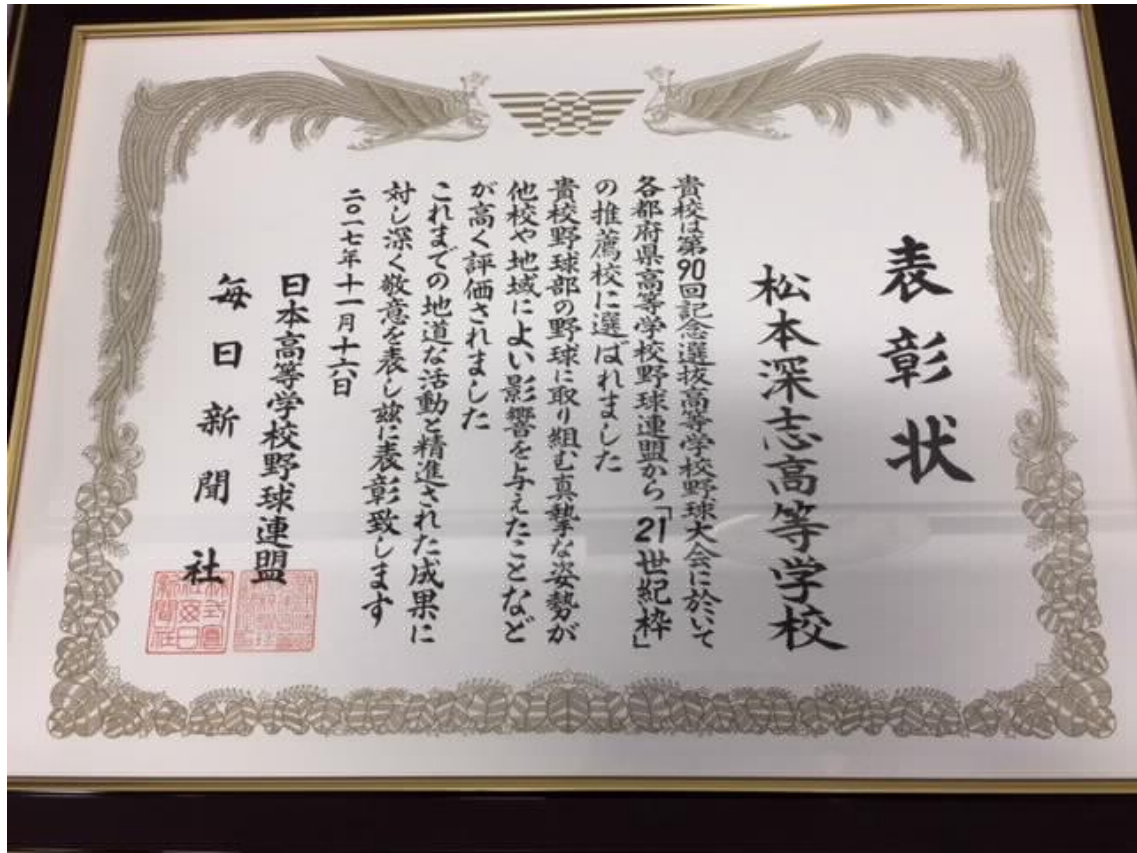 表彰状
松本深志高等学校
貴校は第90回記念選抜高等学校野球大会に於いて
各都府県高等学校野球連盟から「21世紀枠」
の推薦校に選ばれました
貴校野球部の野球に取り組む真摯な姿勢が
他校や地域によい影響を与えたことなど
が高く評価されました
これまでの地道な活動と精進された成果に
対し深く敬意を表し玆に表彰致します
二〇一七年十一月十六日
日本高等学校野球連盟
毎日新聞社